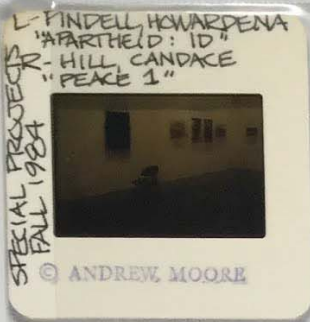 L- PINDELL, HOWARDENA
"APARTHEID: ID"
R- HILL, CANDACE
"PEACE 1"
SPECIAL PROJECTS
FALL 1984
© ANDREW MOORE